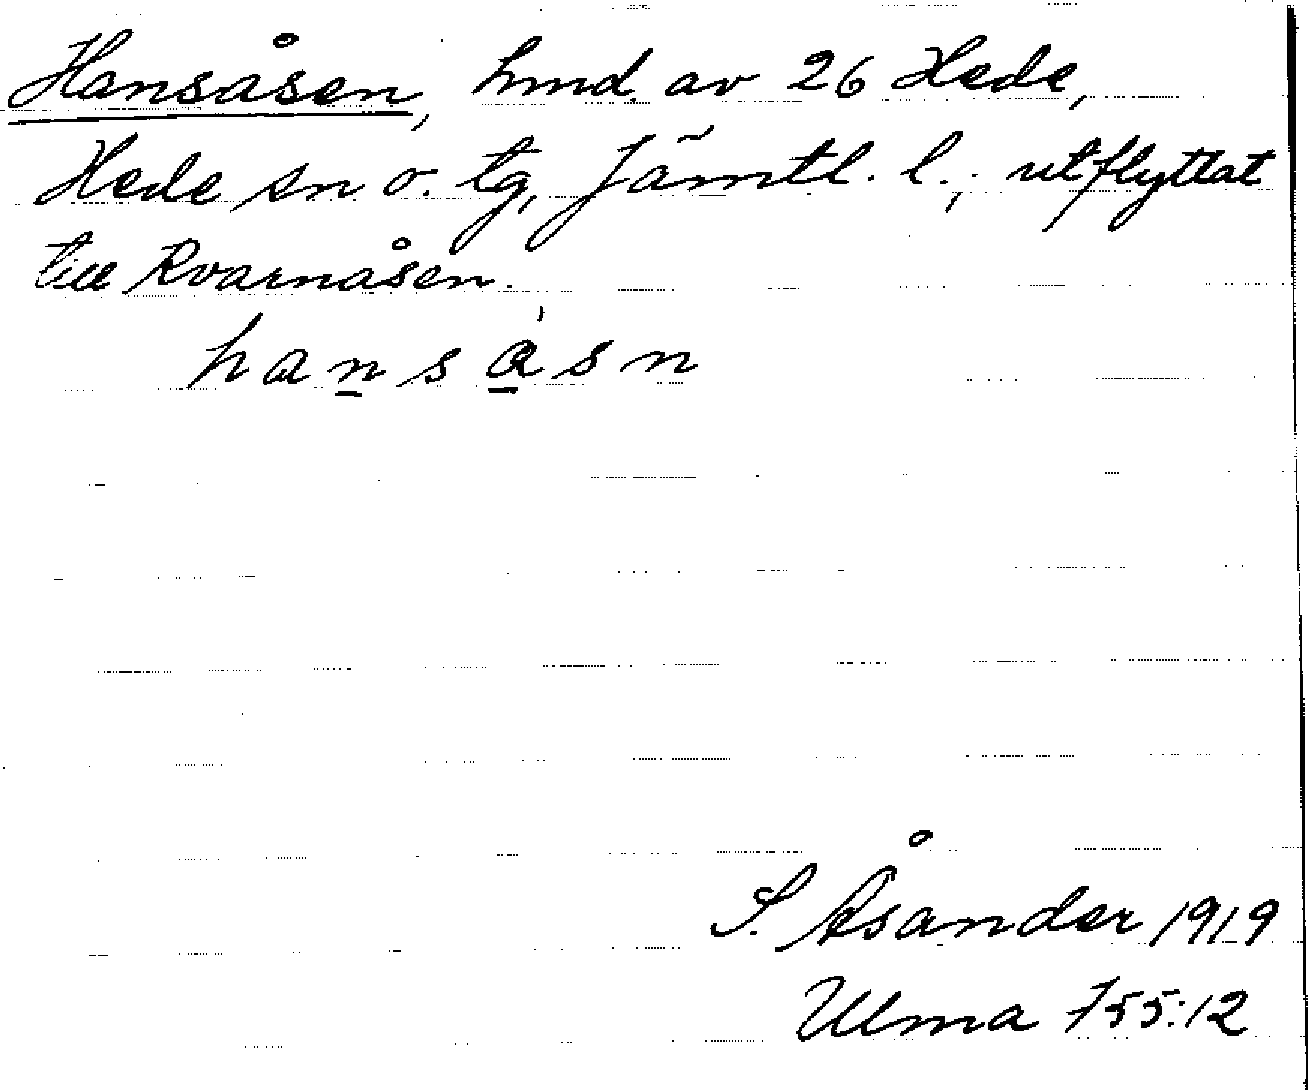 Hansåsen, hmd. av 26 Hede,
Hede sn o. tg, Jämtl. l.; utflyttat
till Kvarnåsen.
hansåsn
S. Åsander 1919
Ulma 755:12